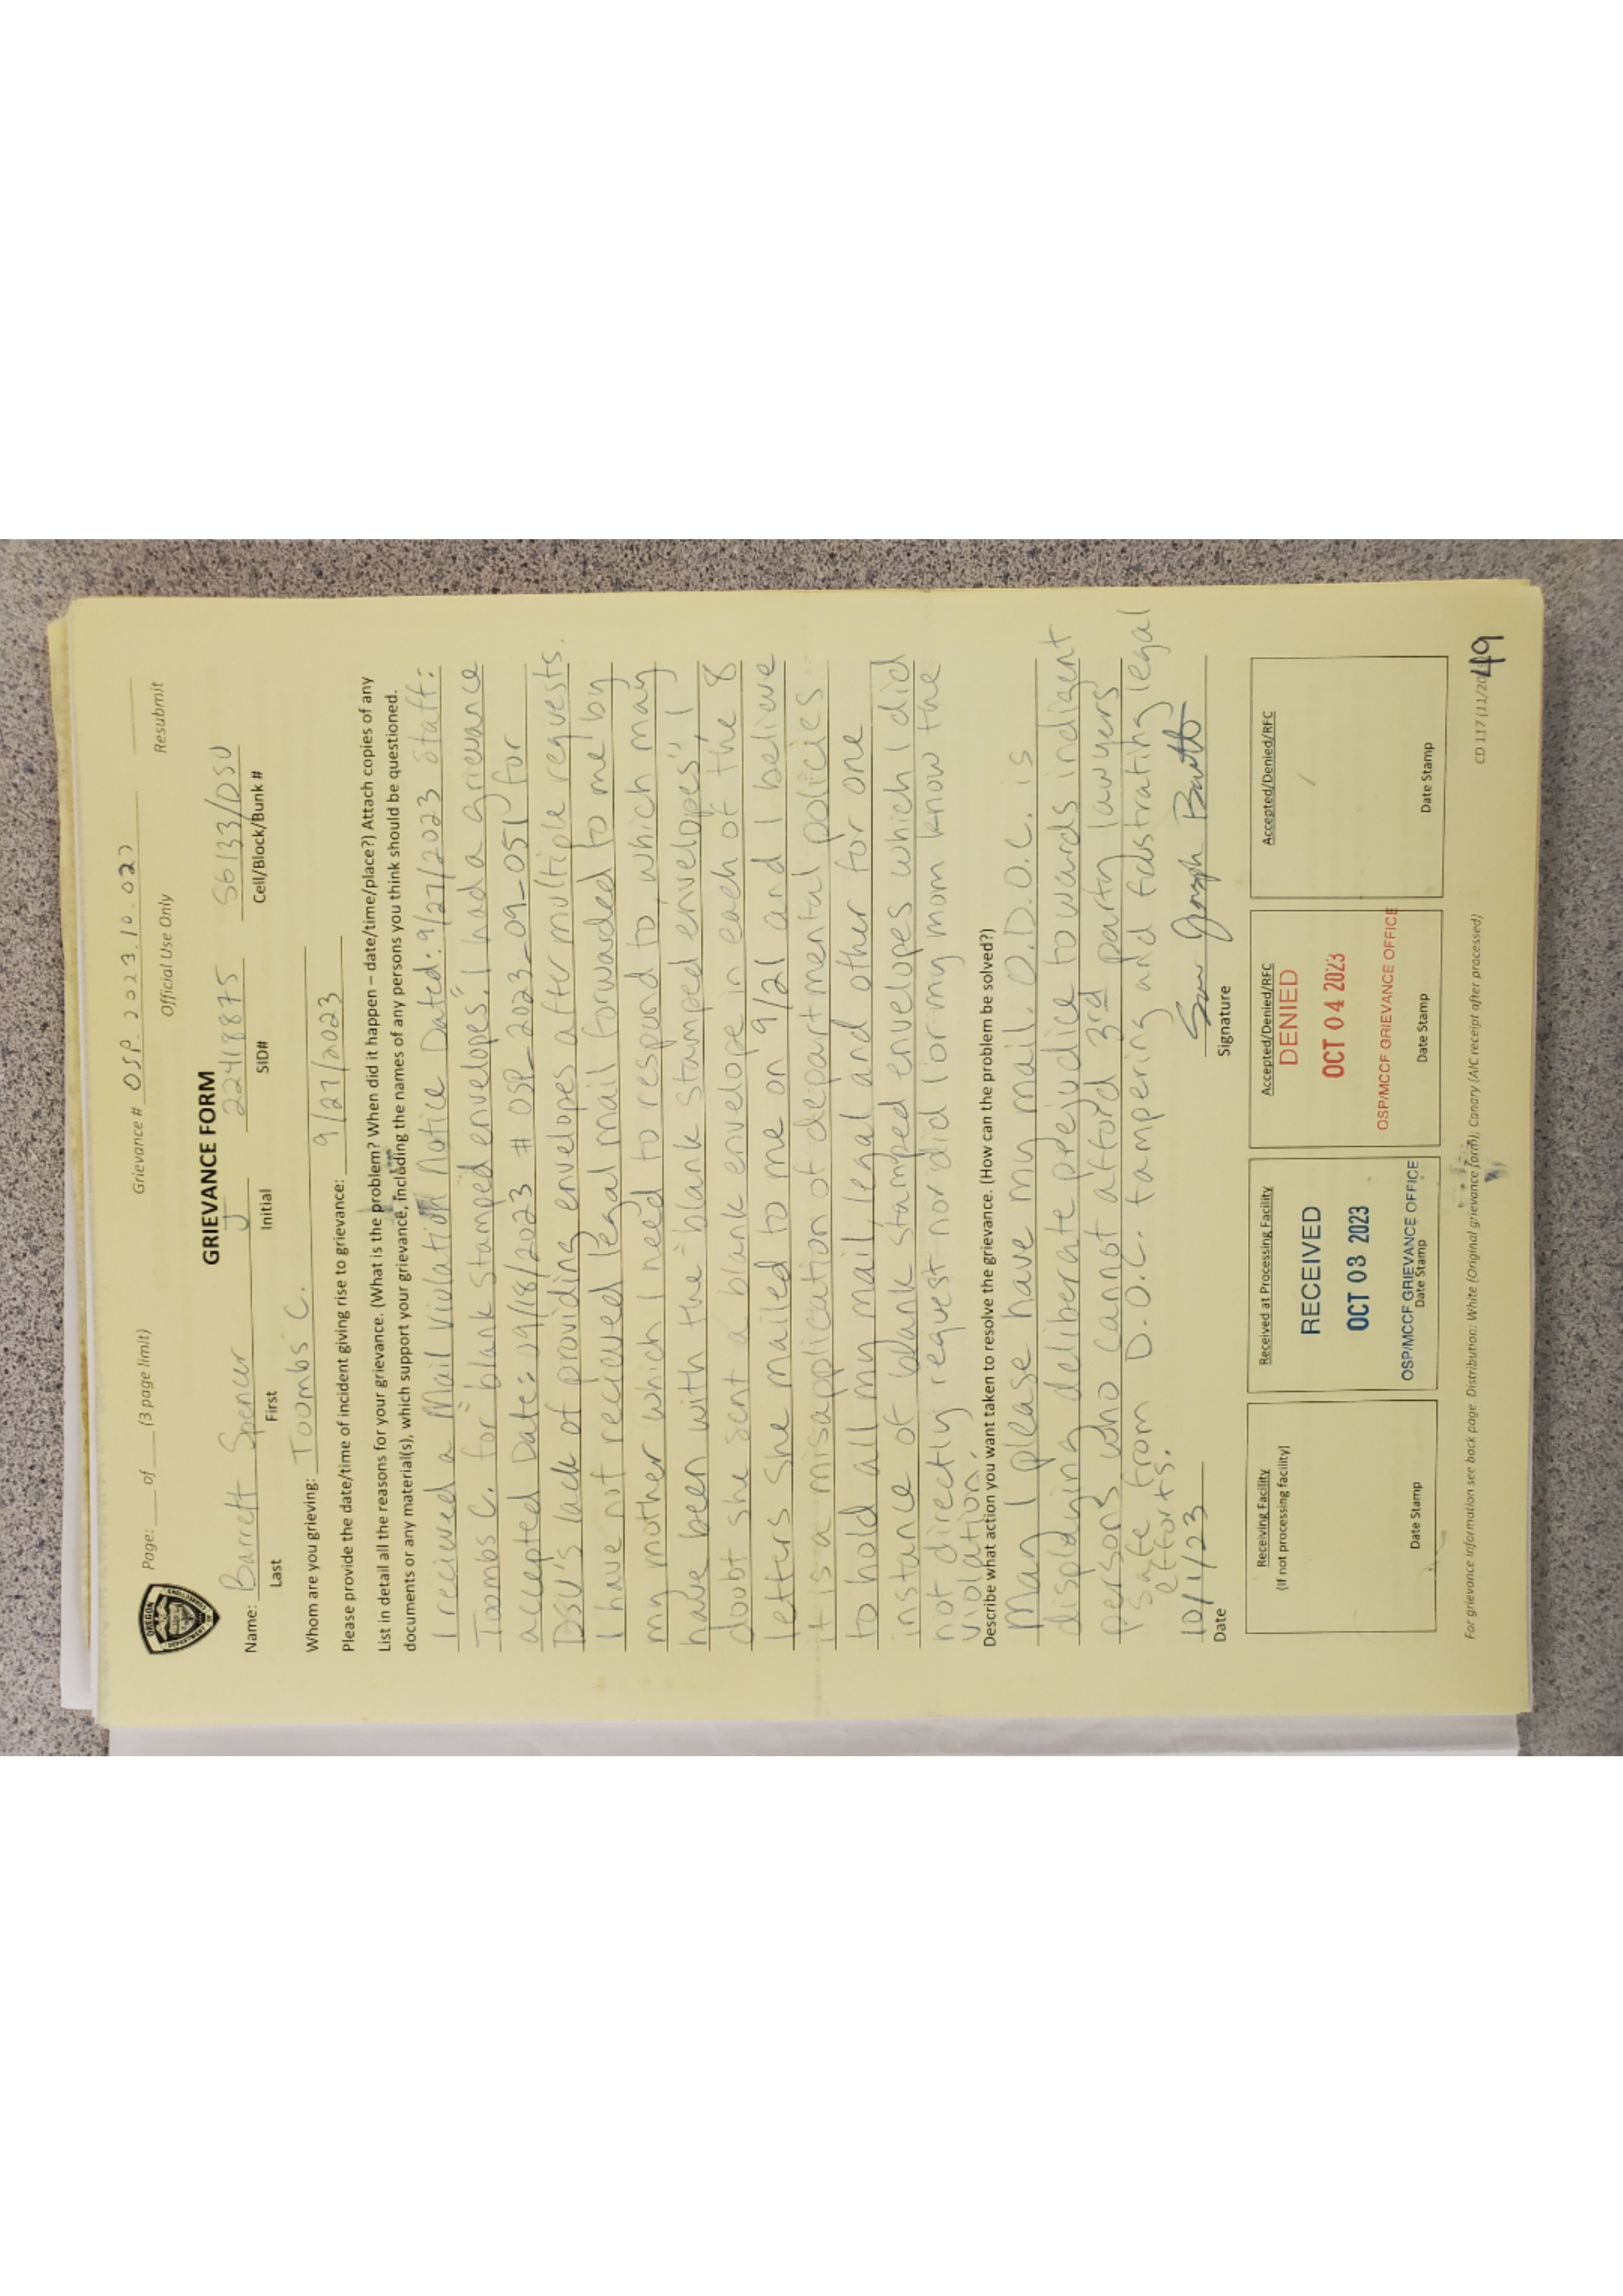 Page: ____ of ____ (3 page limit)
Grievance # OSP. 2023.10.027
Official Use Only
Resubmit
OREGON
DEPARTMENT OF CORRECTIONS
GRIEVANCE FORM
Name: Barrett Spencer J 22418875 S6133/DSU
Last First Initial SID# Cell/Block/Bunk #
Whom are you grieving: Toombs C.
Please provide the date/time of incident giving rise to grievance: 9/27/2023
List in detail all the reasons for your grievance. (What is the problem? When did it happen – date/time/place?) Attach copies of any
documents or any material(s), which support your grievance, including the names of any persons you think should be questioned.
I recieved a Mail Violation Notice Dated: 9/27/2023 staff:
Toombs C. for "blank stamped envelopes". I had a grievance
accepted Date: 09/18/2023 # OSP_2023_09_051 for
DSU's lack of providing envelopes after multiple requests.
I have not recieved legal mail forwarded to me by
my mother which I need to respond to, which may
have been with the "blank stamped envelopes", I
doubt she sent a blank envelope in each of the 8
letters she mailed to me on 9/21 and I believe
it is a misapplication of departmental policies
to hold all my mail, legal and other for one
instance of blank stamped envelopes which I did
not directly request nor did I or my mom know the
violation.
Describe what action you want taken to resolve the grievance. (How can the problem be solved?)
May I please have my mail. O.D.O.C. is
displaying deliberate prejudice towards indigent
persons who cannot afford 3rd party lawyers
safe from D.O.C. tampering and fustrating legal
efforts.
10/1/23
Date
Signature
Receiving Facility
(If not processing facility)
Date Stamp
Received at Processing Facility
RECEIVED
OCT 03 2023
OSP/MCCF GRIEVANCE OFFICE
Date Stamp
Accepted/Denied/RFC
DENIED
OCT 04 2023
OSP/MCCF GRIEVANCE OFFICE
Date Stamp
Accepted/Denied/RFC
Date Stamp
For grievance information see back page. Distribution: White (Original grievance form); Canary (AIC receipt after processed)
CD 117 (11/20
49